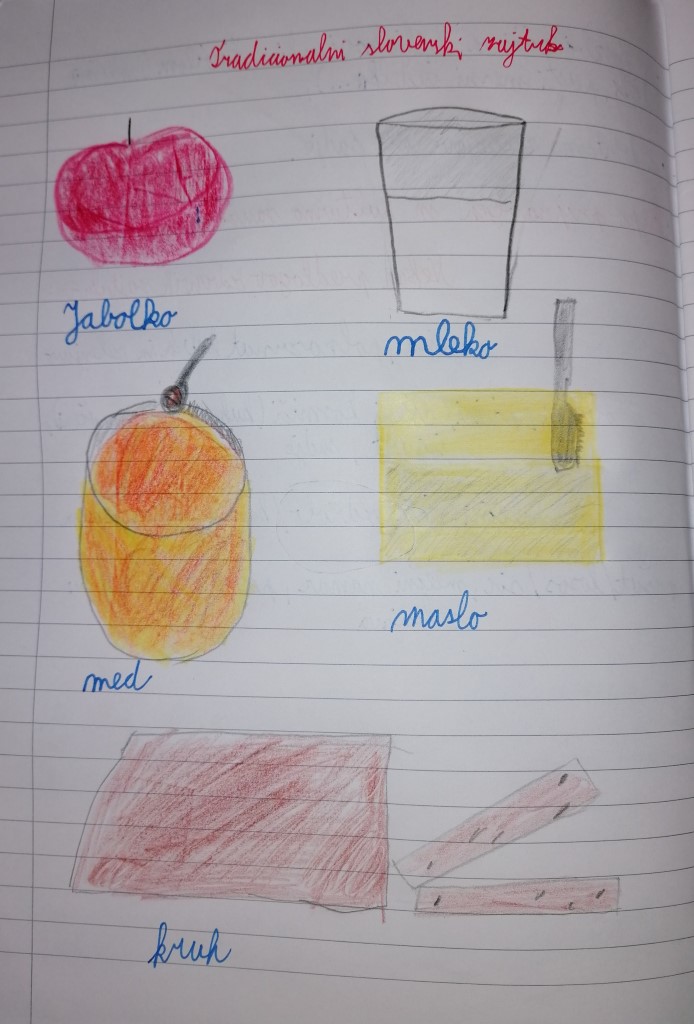 Tradicionalni slovenski zajtrk
Jabolko
mleko
med
maslo
kruh